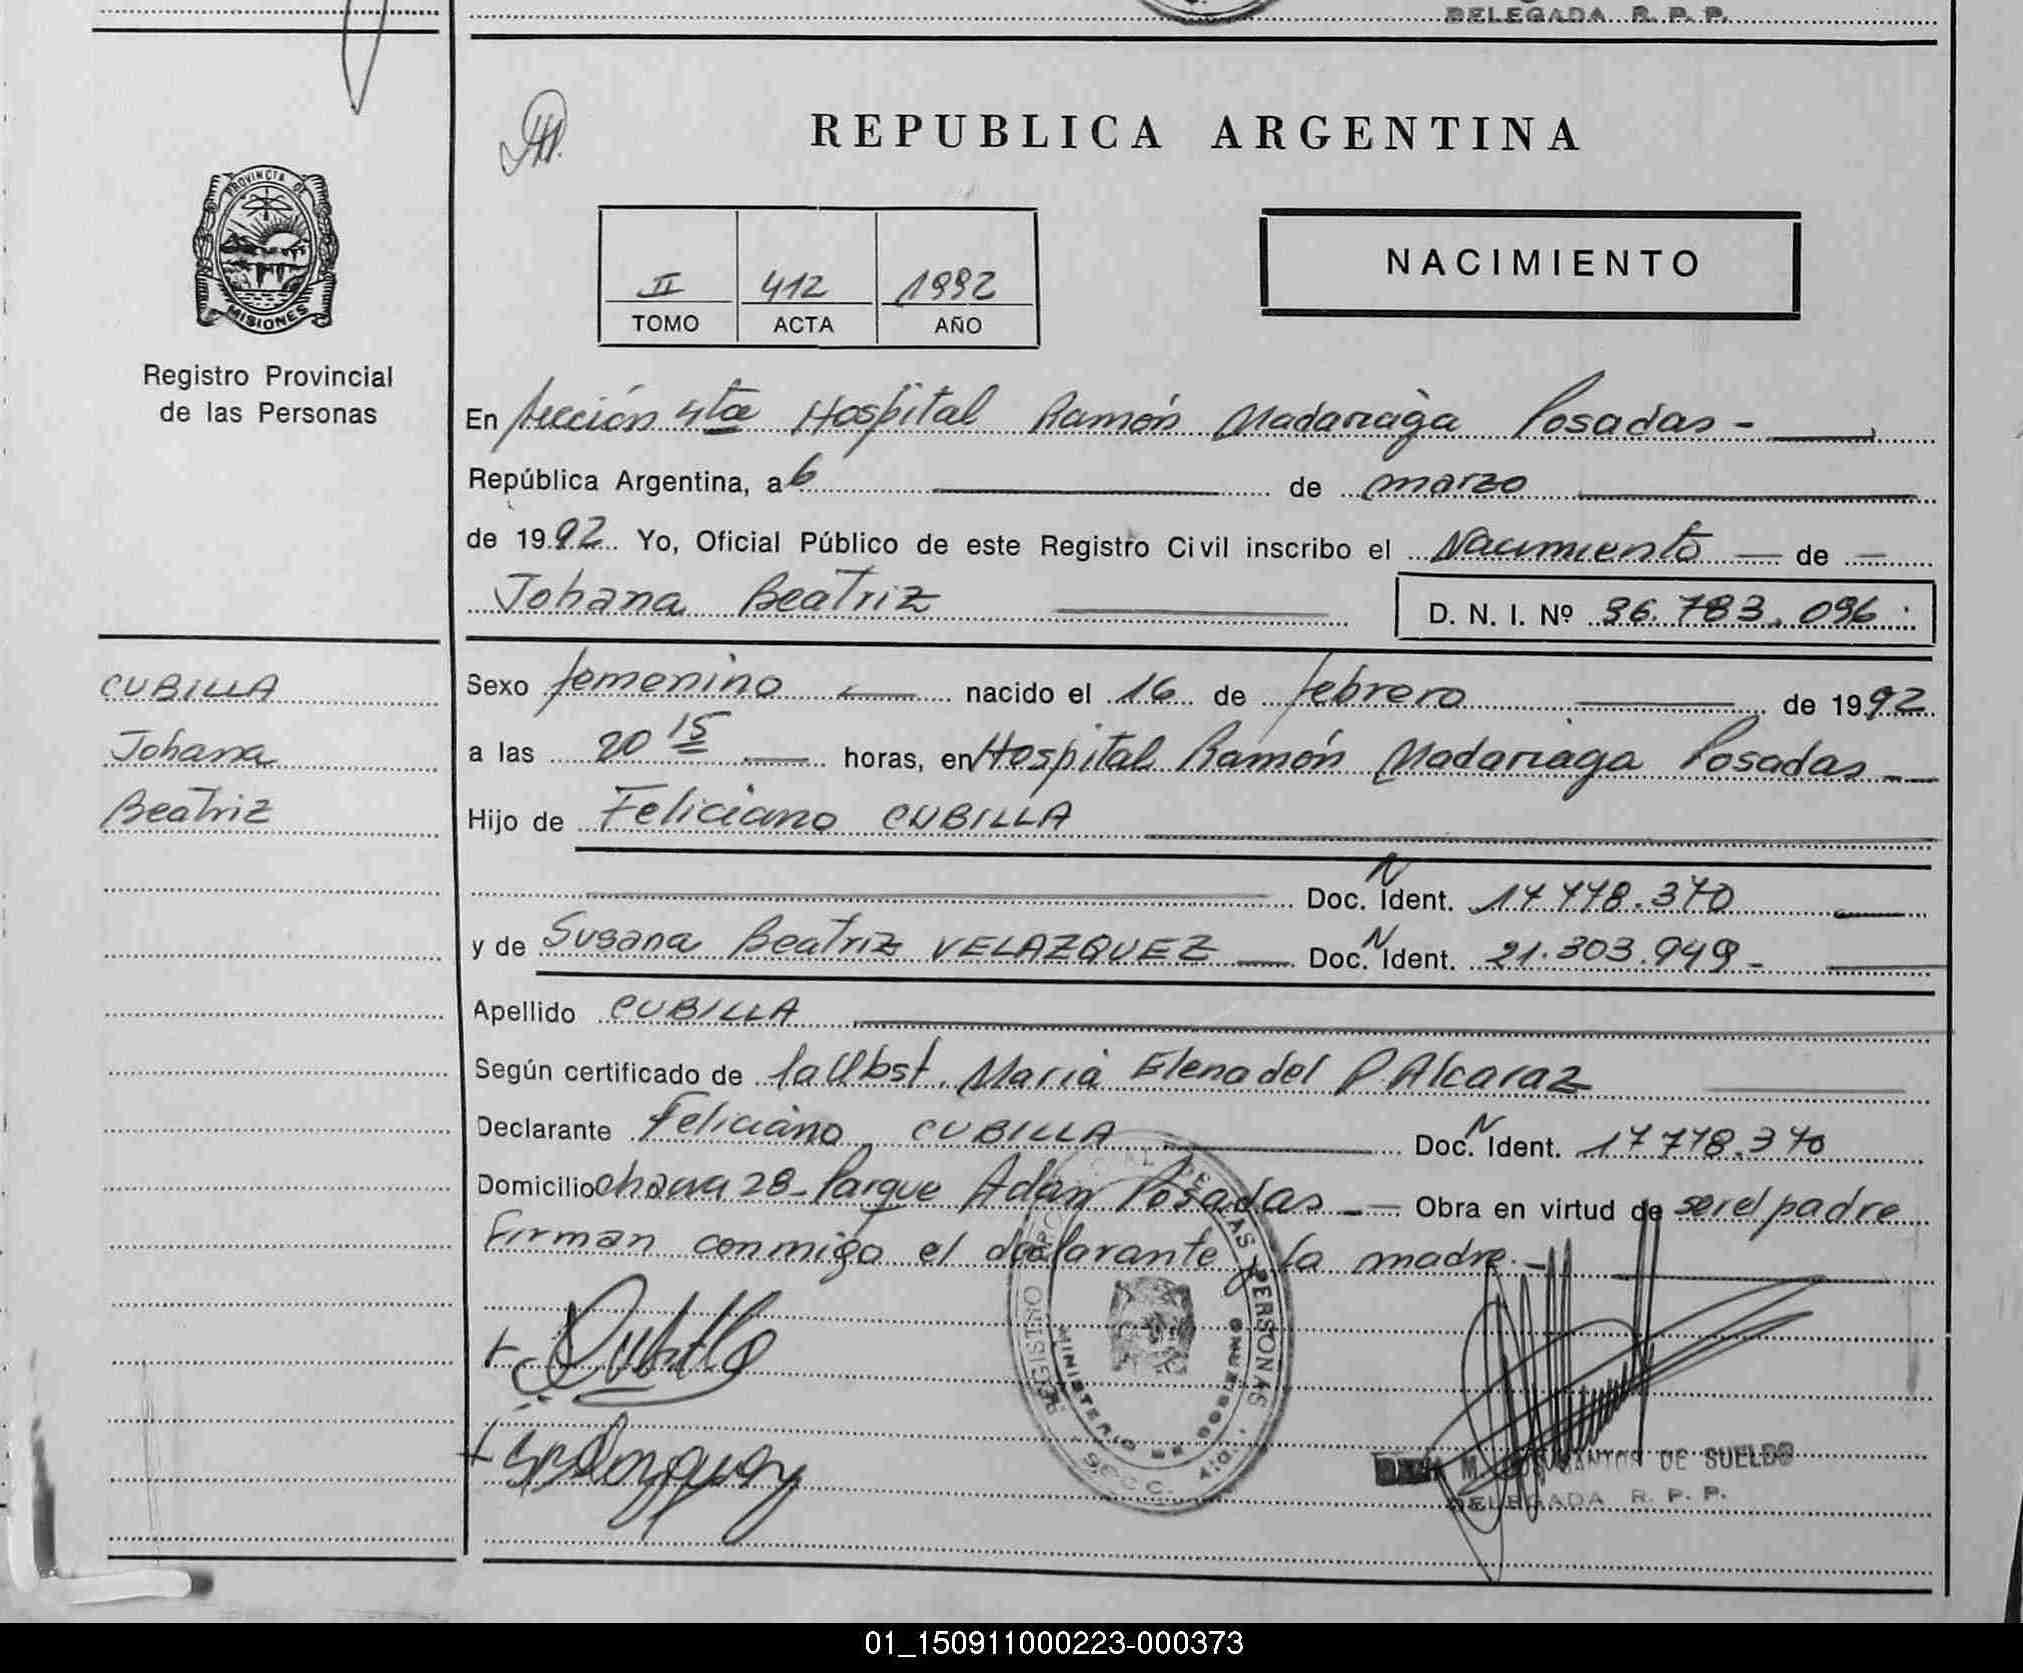 DELEGADA R. P. P.
REPUBLICA ARGENTINA
PROVINCIA DE
MISIONES
Registro Provincial
de las Personas
II 412 1992
TOMO ACTA AÑO
NACIMIENTO
En sección 4ta Hospital Ramón Madariaga Posadas -
República Argentina, a 6 de marzo
de 1992 Yo, Oficial Público de este Registro Civil inscribo el Nacimiento de
Johana Beatriz
D. N. I. Nº 36.783.096
CUBILLA
Johana
Beatriz
Sexo femenino nacido el 16 de febrero de 1992
a las 20 15 horas, en Hospital Ramón Madariaga Posadas
Hijo de Feliciano CUBILLA
Doc. N Ident. 17.778.370
y de Susana Beatriz VELAZQUEZ Doc. N Ident. 21.303.949 -
Apellido CUBILLA
Según certificado de la Obst. María Elena del P. Alcaraz
Declarante Feliciano CUBILLA Doc. N Ident. 17.778.370
Domicilio chacra 28 - Parque Adam Posadas - Obra en virtud de ser el padre
Firman conmigo el declarante y la madre. -
REGISTRO PERSONAS
MINISTERIO DE GOBIERNO
M. SANTOS DE SUELDO
DELEGADA R. P. P.
01_150911000223-000373